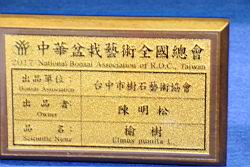 中華盆栽藝術全國總會
2017 National Bonsai Association of R.O.C., Taiwan
出品單位： 台中市樹石藝術協會
Bonsai Association
出品者： 陳明松
Owner
品名： 榆樹
Scientific Name Ulmus pumila L.